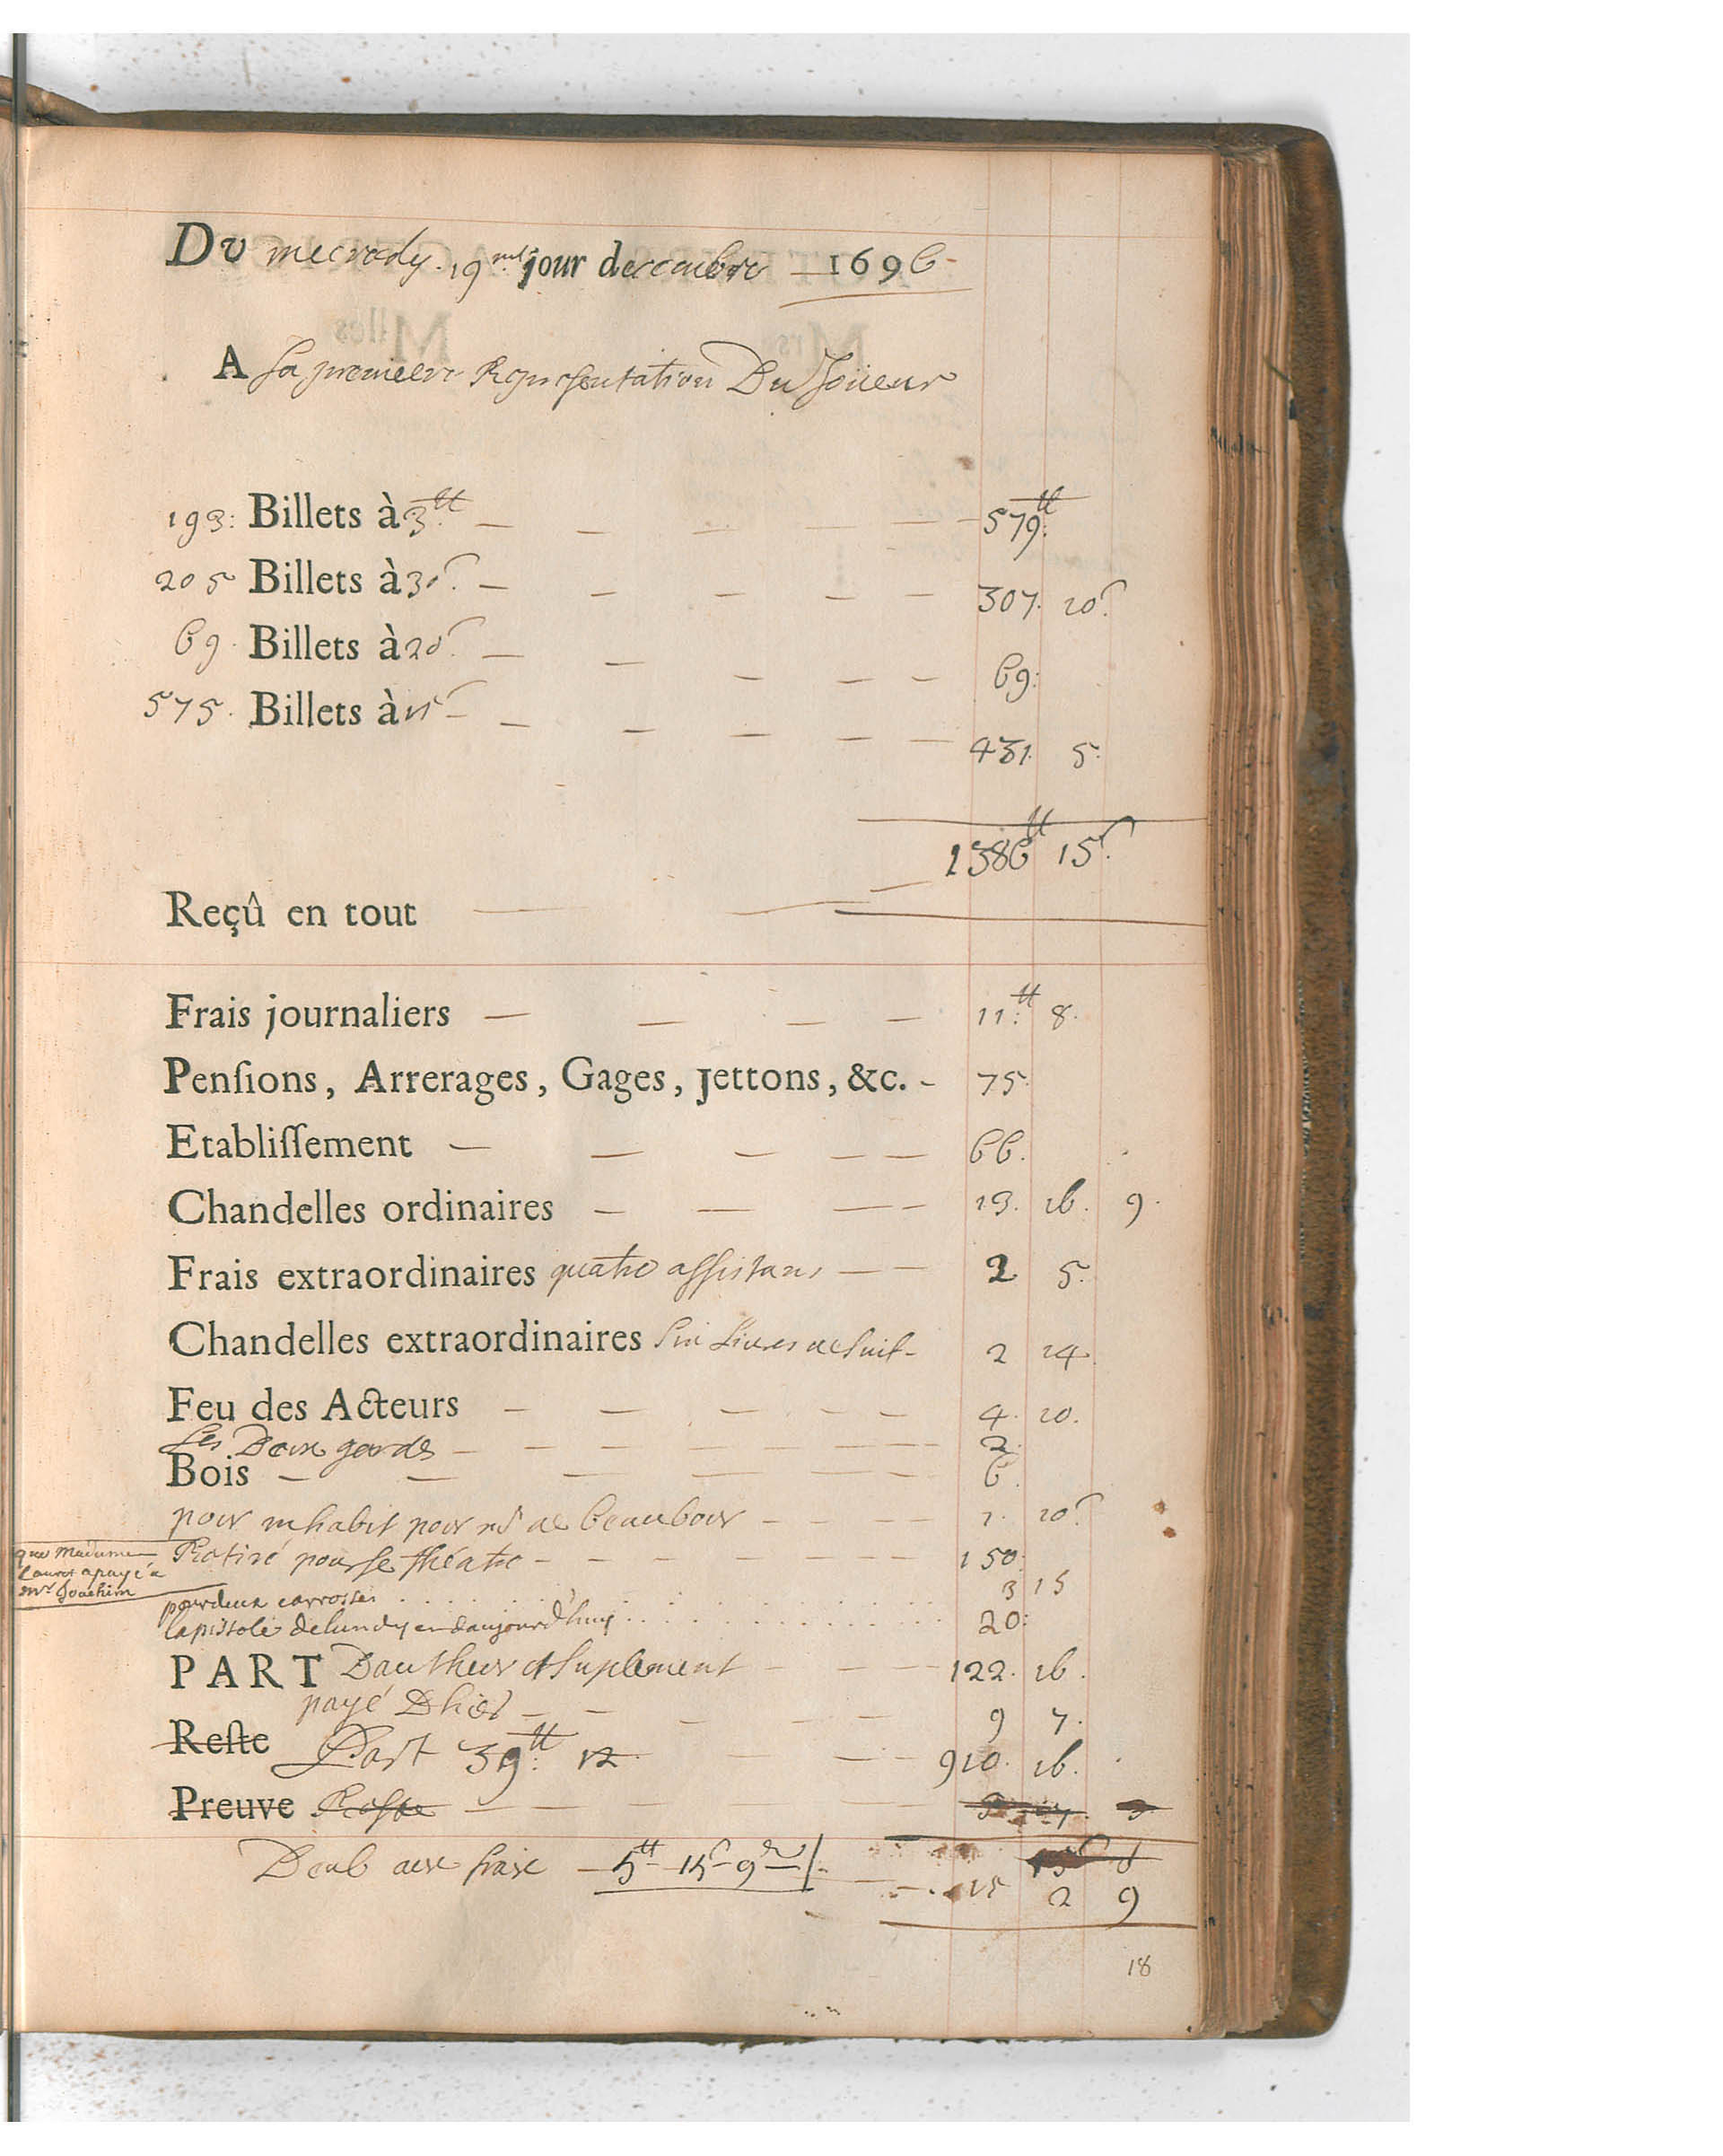 Du mecredy. 19me jour decembre 1696
A La premiere Representation Du Joüeur
193: Billets à 3tt 579tt
205 Billets à 30s 307. 10s
69. Billets à 20s 69:
575. Billets à 15s 431. 5.
1386tt 15s
Reçû en tout
Frais journaliers 11tt 8.
Penſions, Arrerages, Gages, Jettons, &c. 75.
Etabliſſement 66.
Chandelles ordinaires 13. 16. 9.
Frais extraordinaires quatre assistans 2 5.
Chandelles extraordinaires Six Livres de Suif 2 14
Feu des Acteurs 4. 10.
Les Deux gardes 2.
Bois 6.
pour habit pour mr de beaubour 1. 10s
Retiré pour le théatre 150
que Madame
Lauret a payé a
mr Joachim
pour deux carrosses 3 15
la pistole de lundy et d'aujourd'huy 20:
PART Dautheur et Suplement 122. 16.
payé D'hier 9 7.
Reſte Part 39tt: 12 910. 16.
Preuve Reste
Doub aux fraix 5tt 15s 9d
15 2 9
18